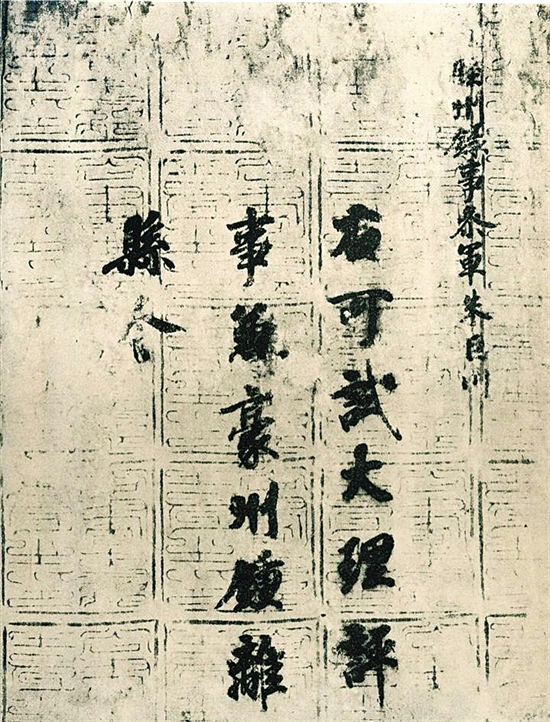 睦州錄事叅軍朱巨川
右可試大理評
事兼豪州鍾離
縣令